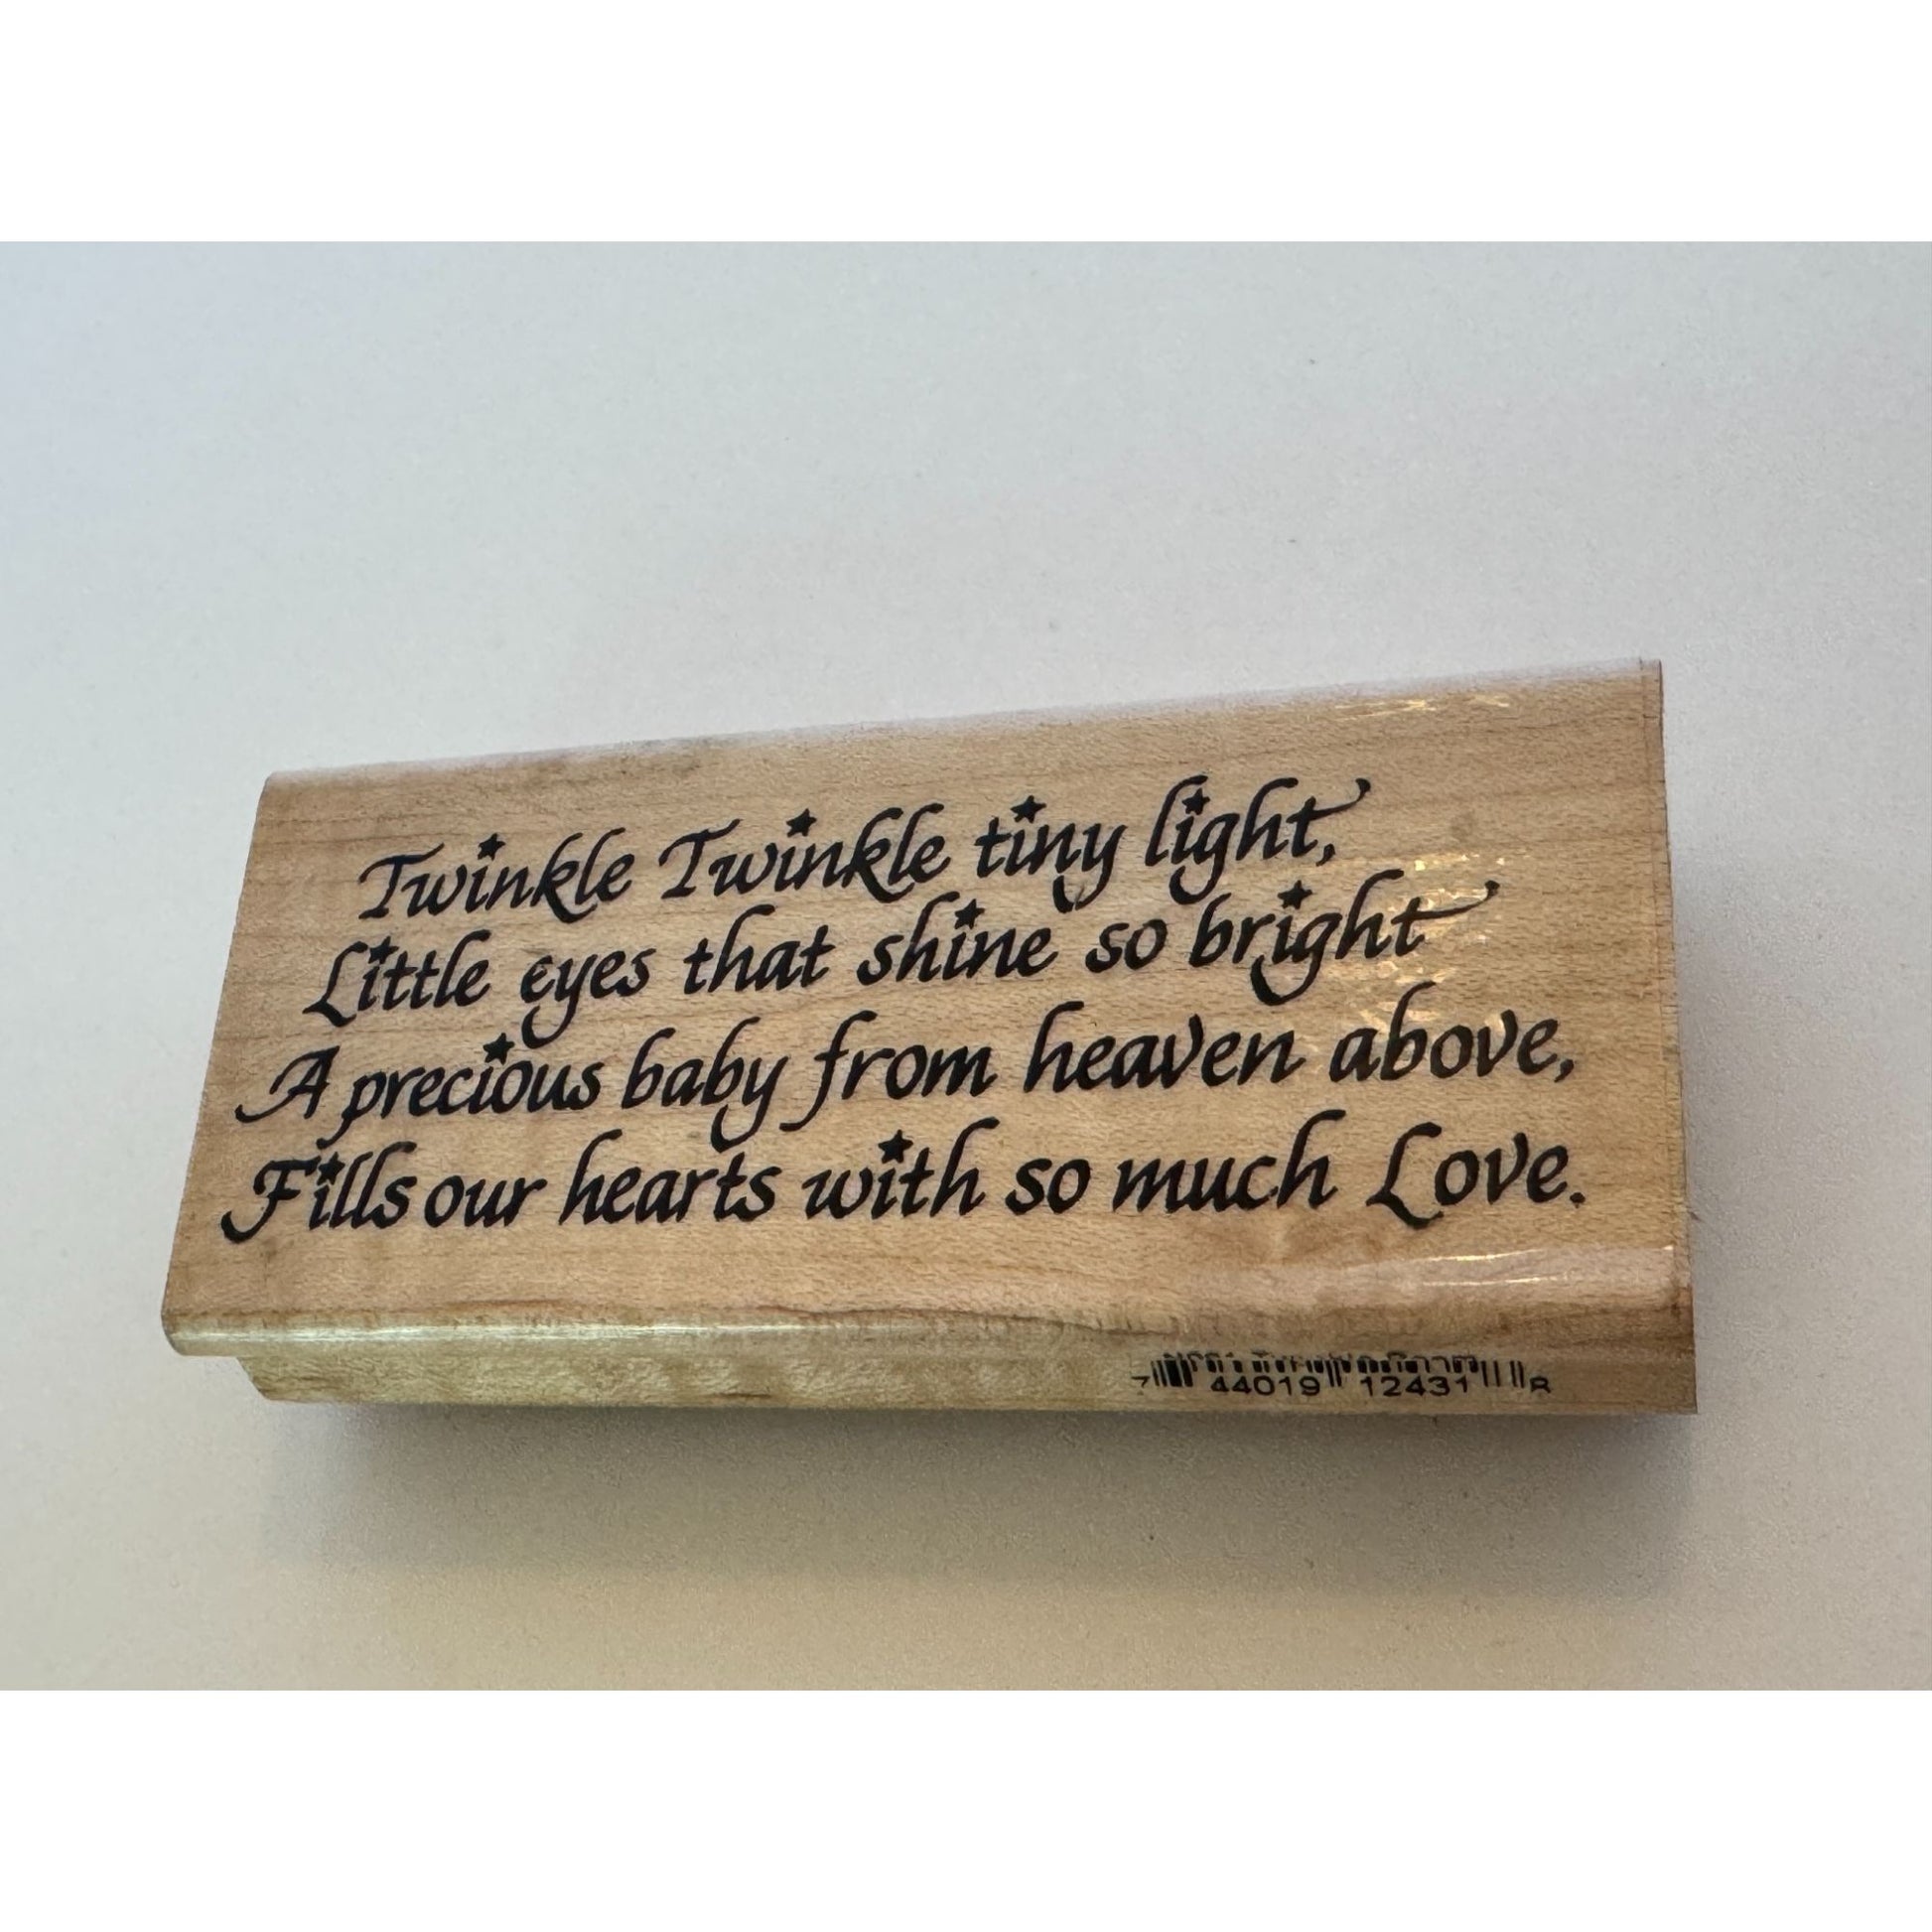 Twinkle Twinkle tiny light,
Little eyes that shine so bright
A precious baby from heaven above,
Fills our hearts with so much Love.
7 44019 12431 8